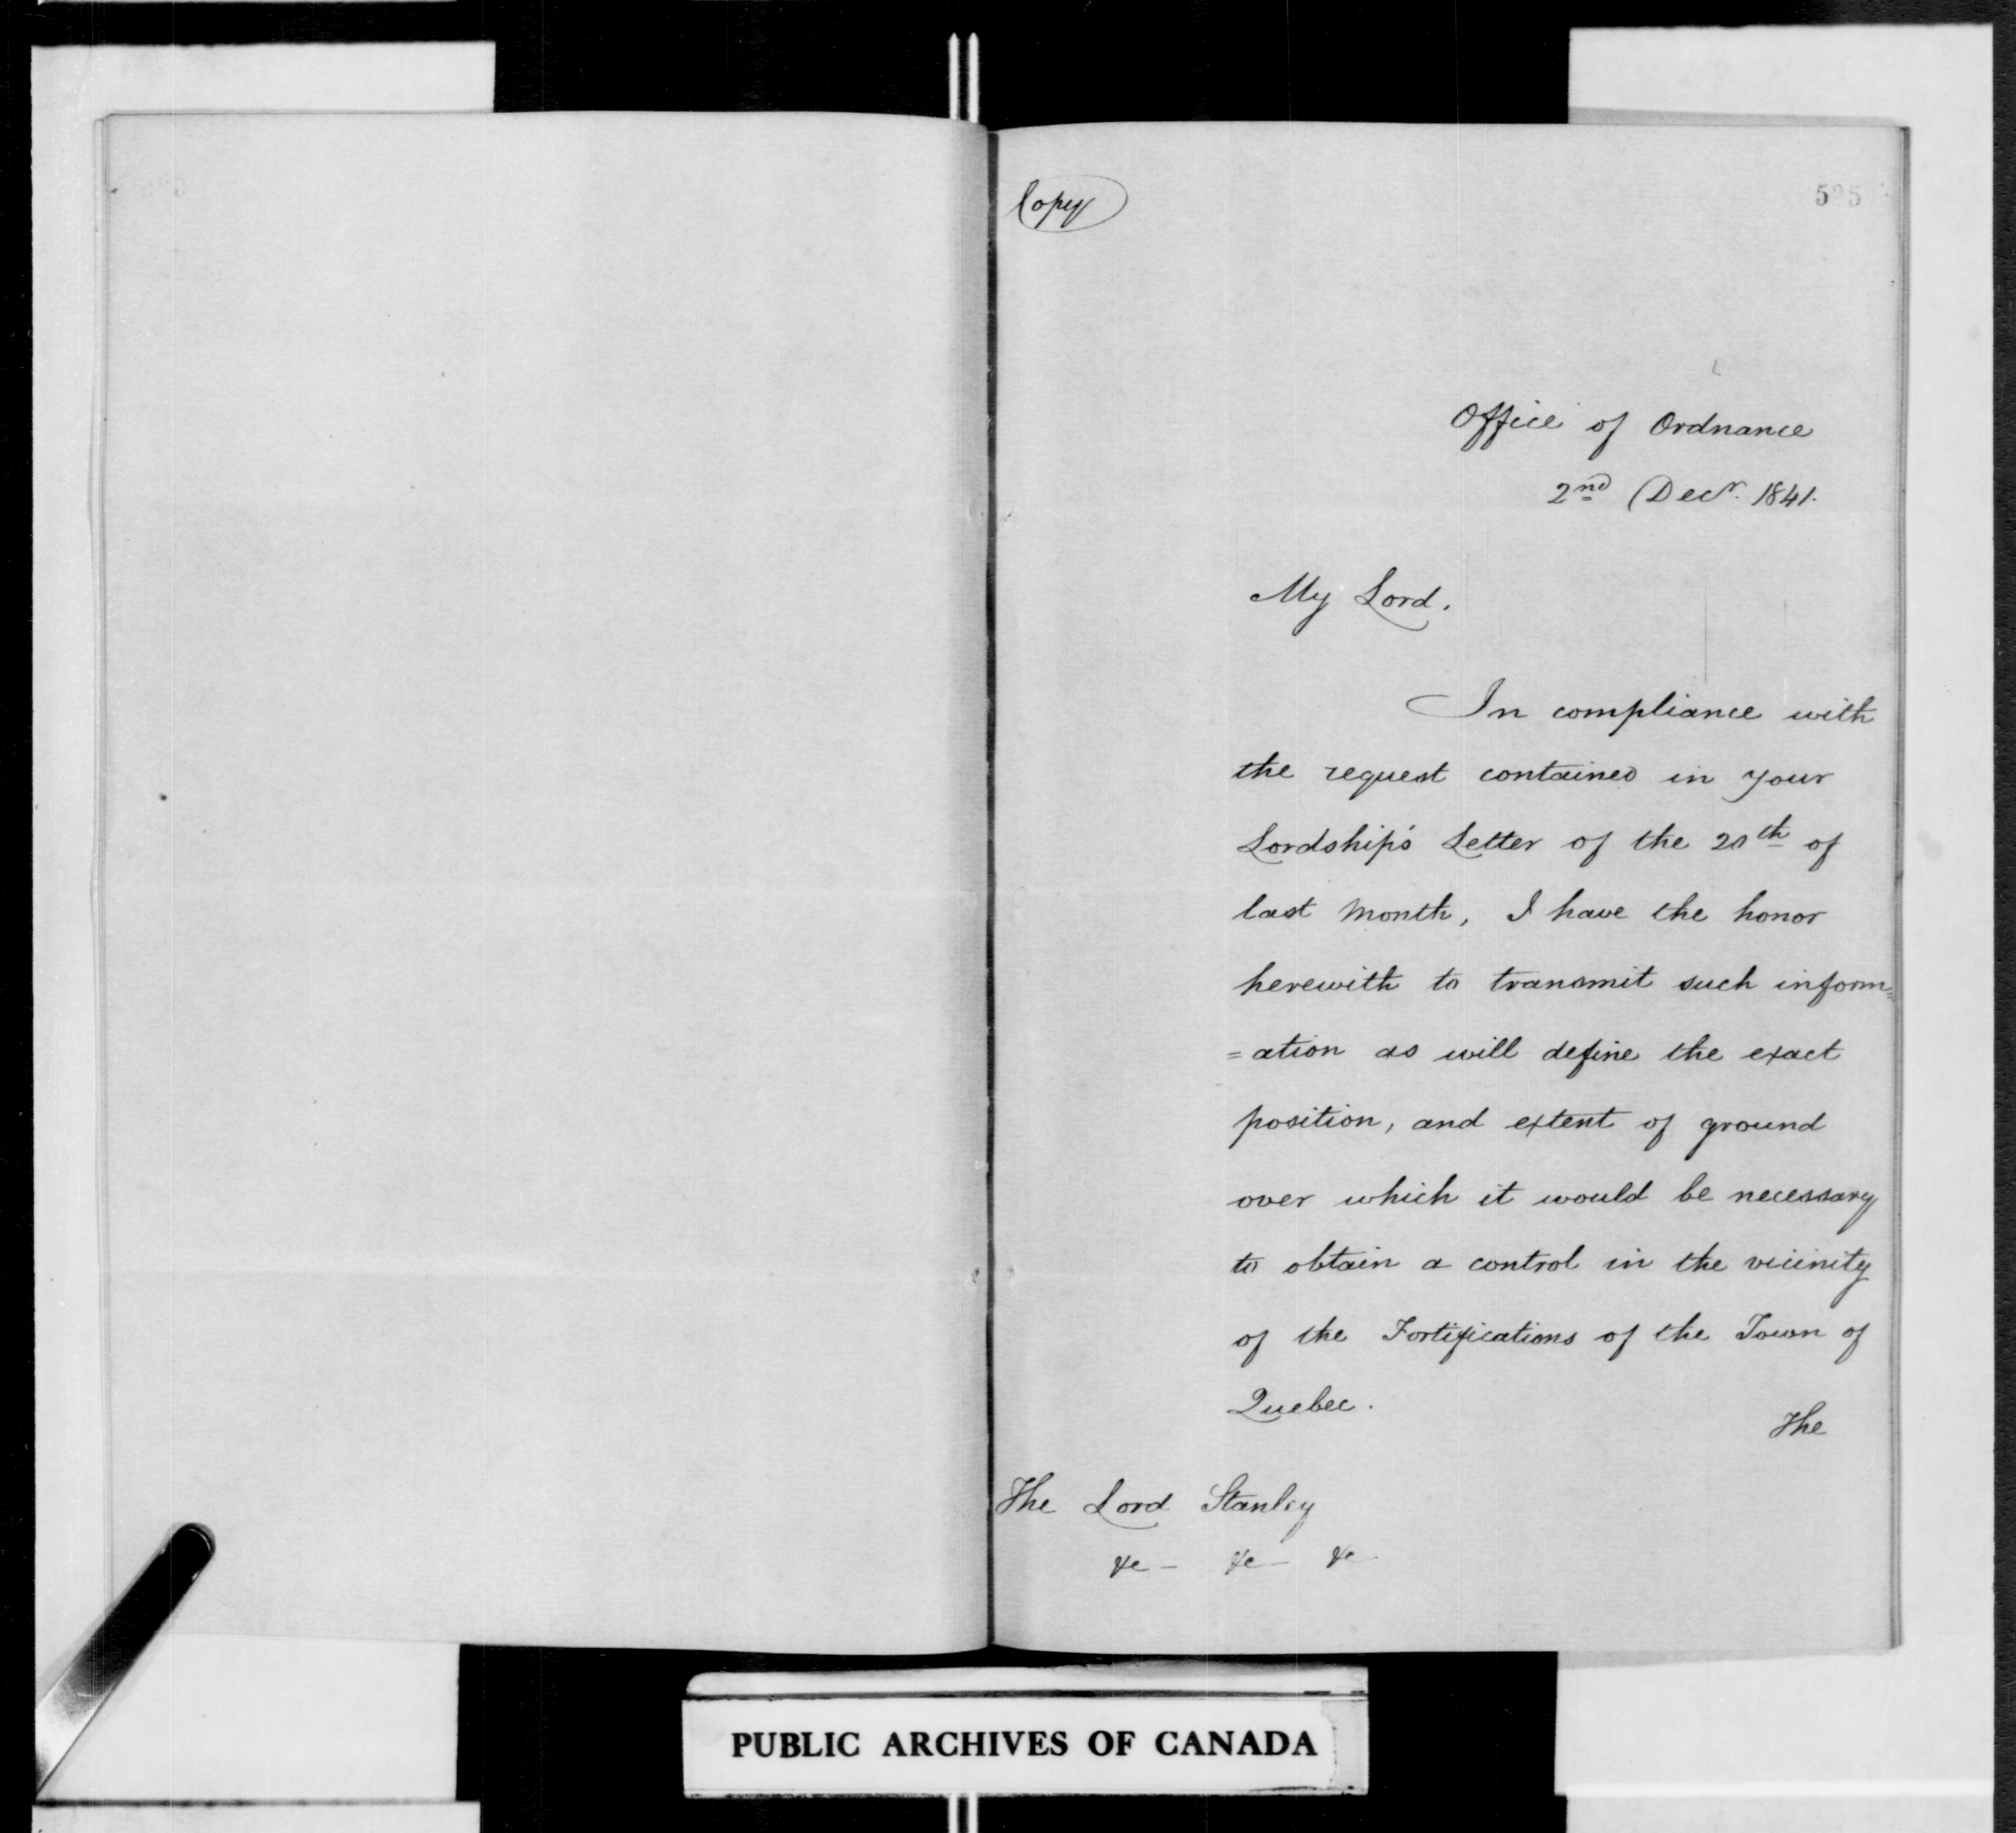 Copy
Office of Ordnance
2nd Decr. 1841.
My Lord.
In compliance with
the request contained in your
Lordship's Letter of the 20th of
last Month, I have the honor
herewith to transmit such inform=
=ation as will define the exact
position, and extent of ground
over which it would be necessary
to obtain a control in the vicinity
of the Fortifications of the Town of
Quebec.
The
The Lord Stanley
&c - &c - &c
PUBLIC ARCHIVES OF CANADA